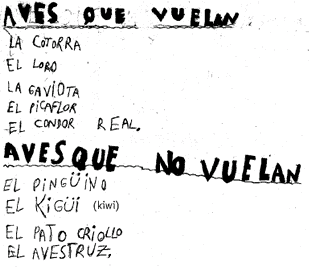 AVES QUE VUELAN
LA COTORRA
EL LORO
LA GAVIOTA
EL PICAFLOR
EL CONDOR REAL.
AVES QUE NO VUELAN
EL PINGÜINO
EL KIGÜI (kiwi)
EL PATO CRIOLLO
EL AVESTRUZ.